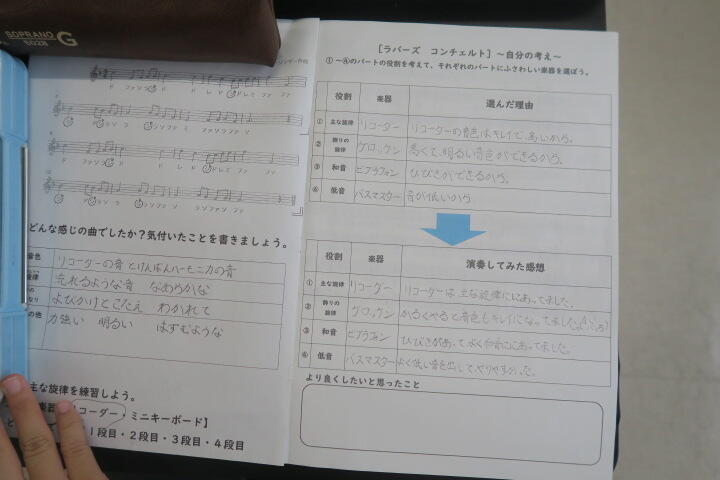 SOPRANO
502B G
どんな感じの曲でしたか？気付いたことを書きましょう。
音色 リコーダーの音とけんばんハーモニカの音
旋律 流れるような音 なめらかな
よびかけとこたえ わかれて
の他 力強い 明るい はずむような
主な旋律を練習しよう。
リコーダー・ミニキーボード】
１段目・２段目・３段目・４段目
［ラバーズ コンチェルト］～自分の考え～
①～④のパートの役割を考えて、それぞれのパートにふさわしい楽器を選ぼう。
役割 楽器 選んだ理由
① 主な旋律 リコーダー リコーダーの音色はキレイで、高いから。
② 飾りの旋律 グロッケン 高くて、明るい音色ができるから。
③ 和音 ビブラフォン ひびきができるから。
④ 低音 バスマスター 音が低いから
役割 楽器 演奏してみた感想
① 主な旋律 リコーダー リコーダーは主な旋律ににあってました。
② 飾りの旋律 グロッケン かるくやると音色もキレイになってました。
③ 和音 ビブラフォン ひびきがあって、よく和音にあってました。
④ 低音 バスマスター よく低い音を出してやりやすかった。
より良くしたいと思ったこと